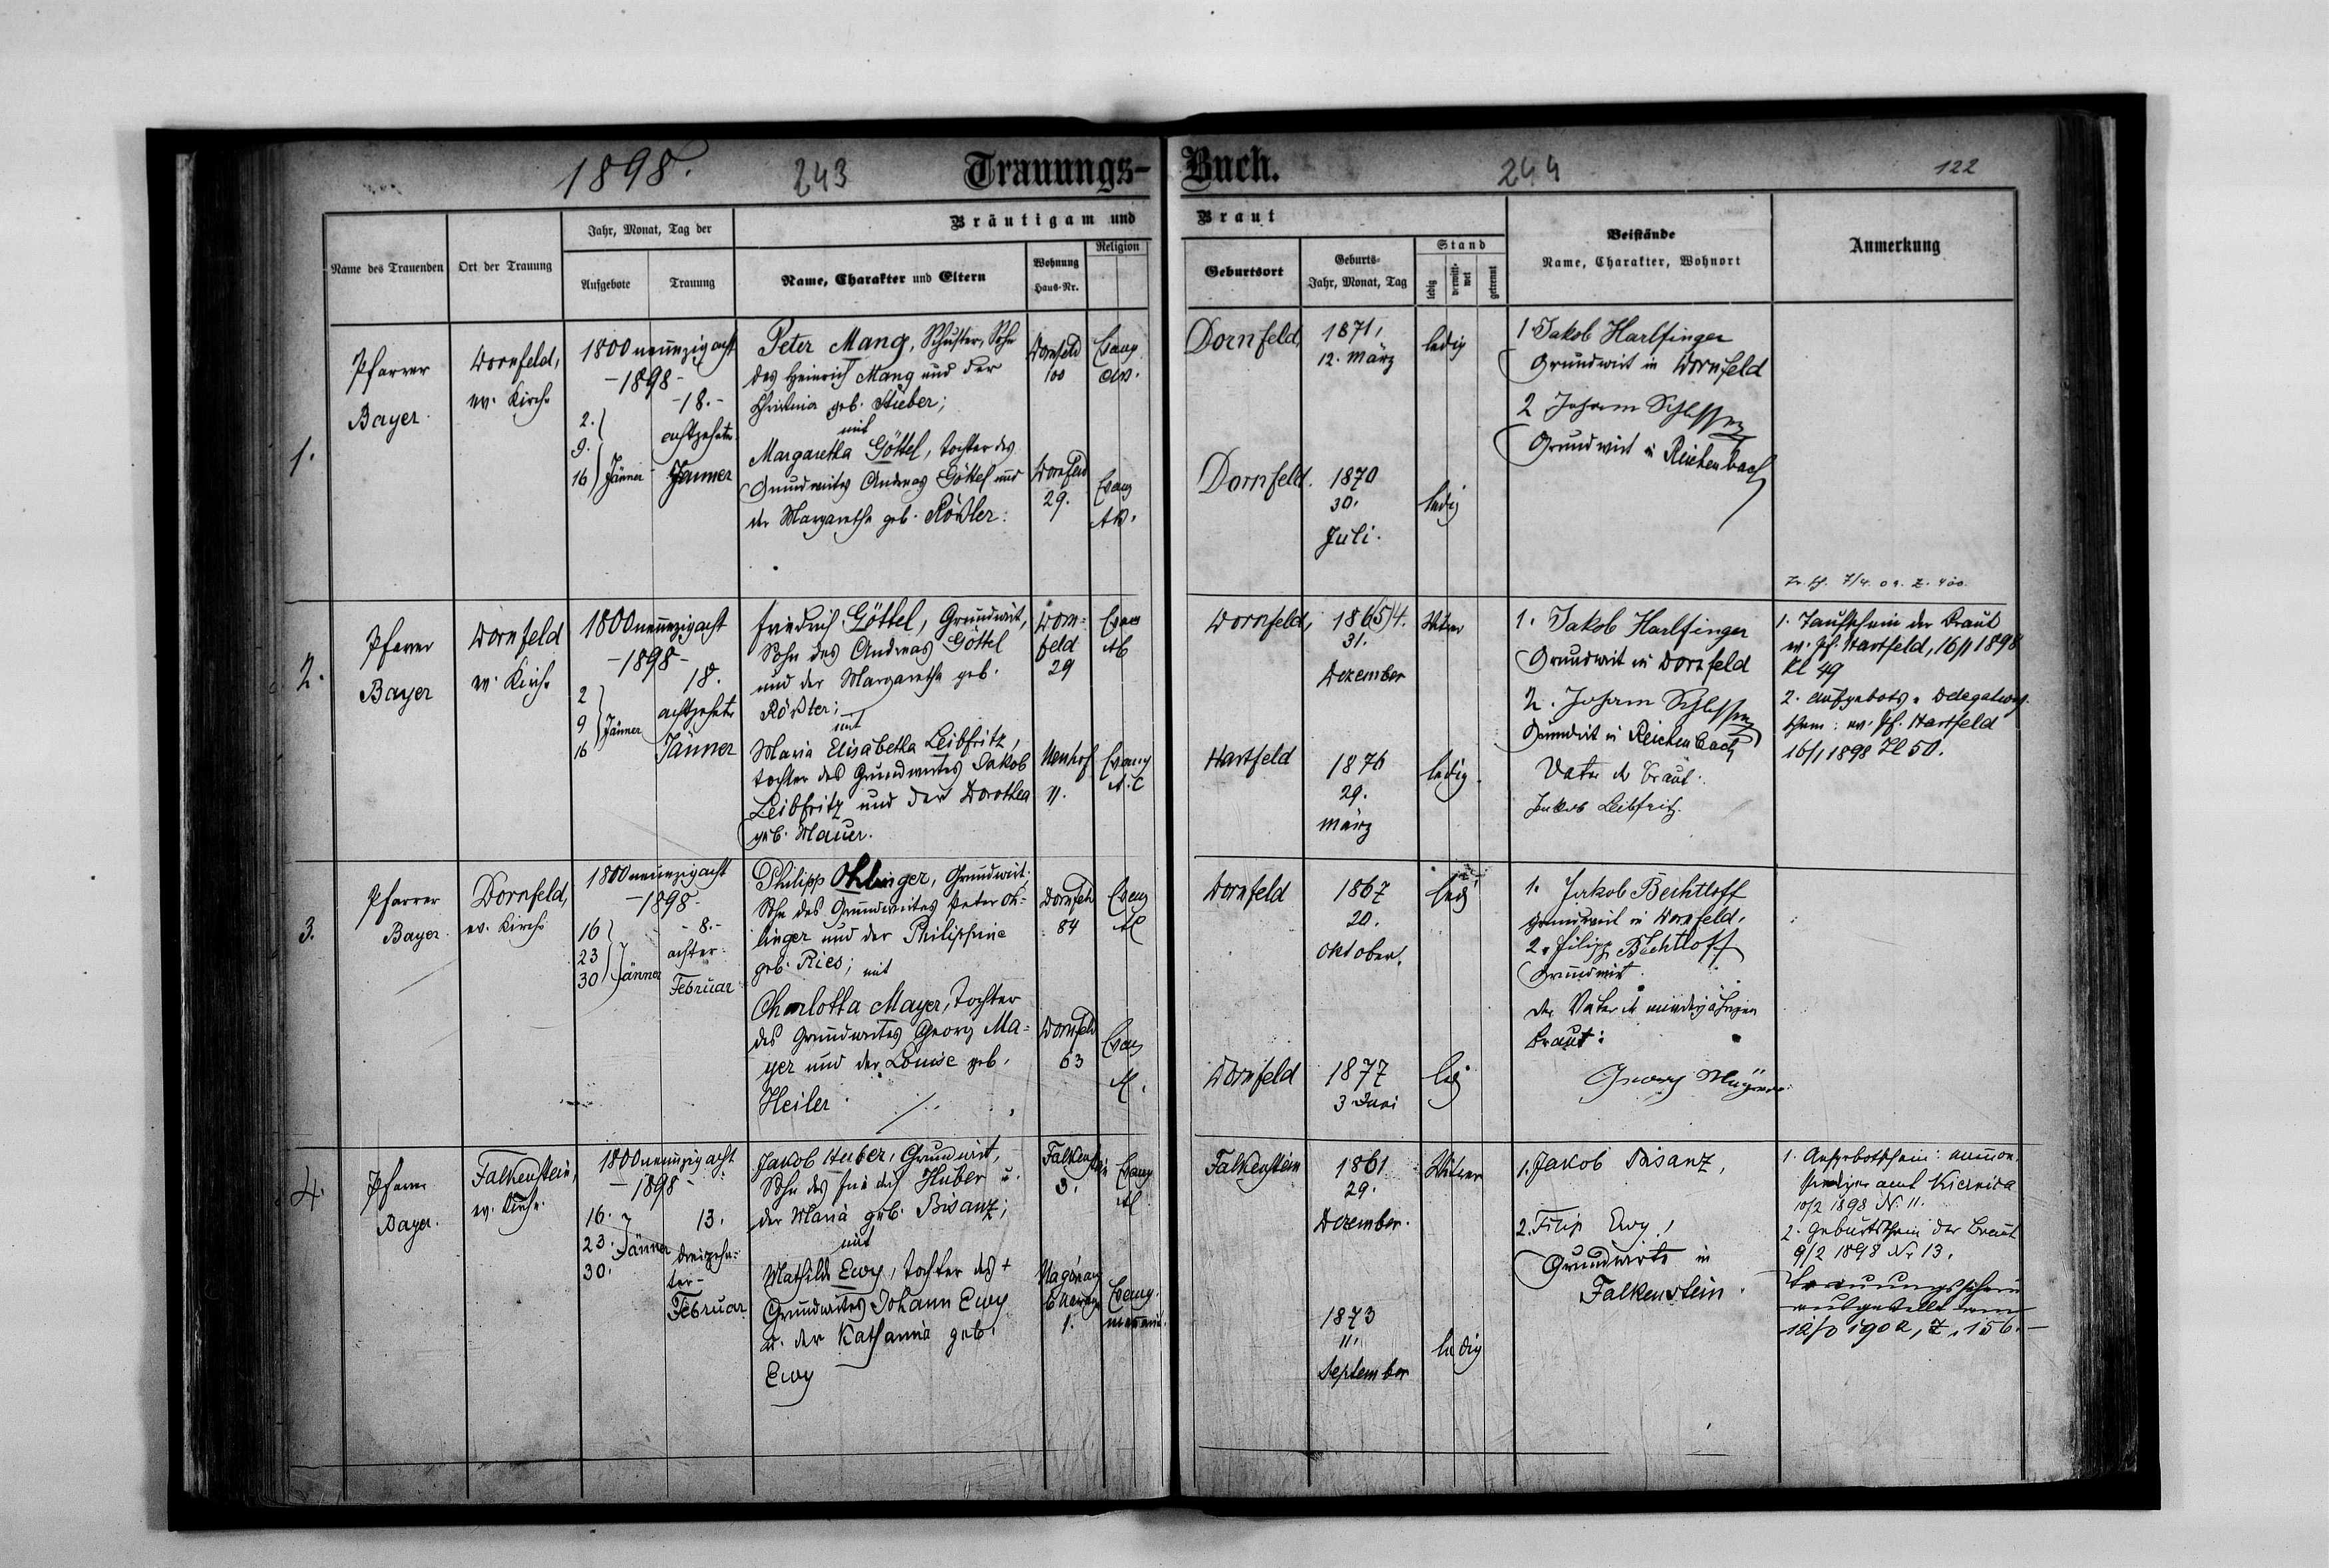 1898.
243
Trauungs-
Buch.
244
122
Name des Trauenden
Ort der Trauung
Jahr, Monat, Tag der
Aufgebote
Trauung
Bräutigam und
Braut
Name, Charakter und Eltern
Wohnung
Haus-Nr.
Religion
Geburtsort
Geburts-
Jahr, Monat, Tag
Stand
ledig
verwitt-
wet
getrennt
Beistände
Name, Charakter, Wohnort
Anmerkung
1.
Pfarrer
Bayer.
Dornfeld,
ev. Kirche
1800 neunzig acht
-1898-
2.
9.
16 Jänner
-18.-
achtzehnter
Jänner
Peter Mang, Schuster, Sohn
des Heinrich Mang und der
Christina geb. Stieber;
mit
Margaretha Göttel, Tochter des
Grundwirtes Andreas Göttel und
der Margaretha geb. Rößler.
Dornfeld
100
Evang
AB.
Dornfeld
29.
Evang
AB.
Dornfeld,
1871,
12. März
ledig
Dornfeld.
1870
30.
Juli.
ledig
1. Jakob Harlfinger
Grundwirt in Dornfeld
2 Johann
Grundwirt in Reichenbach
7/4. 09. Z. 400.
2.
Pfarrer
Bayer
Dornfeld
ev. Kirche
1800 neunzig acht
-1898-
2
9
16
Jänner
18.
achtzehnter
Jänner
Friedrich Göttel, Grundwirt,
Sohn des Andreas Göttel
und der Margaretha geb.
Rößler;
mit
Maria Elisabetha Leibfritz,
Tochter des Grundwirtes Jakob
Leibfritz und der Dorothea
geb. Mauer.
Dorn-
feld
29
Evang
AB
Neuhof
11.
Evang
A.C
Dornfeld,
1865/4.
31.
Dezember
Witwer
Hartfeld
1876
29.
März
ledig.
1. Jakob Harlfinger
Grundwirt in Dornfeld
2. Johann
Grundwirt in Reichenbach
Vater der Braut:
Jakob Leibfritz.
1. Taufschein der Braut
ev. Pf. Hartfeld, 16/1 1898
Zl 49
2. Aufgebots u. Delegations-
schein: ev. Pf. Hartfeld
16/1 1898 Zl 50.
3.
Pfarrer
Bayer.
Dornfeld,
ev. Kirche
1800 neunzig acht
-1898-
16
23
30 Jänner
-8.-
achter
Februar
Philipp Ohlinger, Grundwirt.
Sohn des Grundwirtes Peter Oh-
linger und der Philippine
geb. Ries; mit
Charlotta Mayer, Tochter
des Grundwirtes Georg Ma-
yer und der Louise geb.
Heiler
Dornfeld
84
Evang
AC
Dornfeld
63
Evang
AC.
Dornfeld
1867
20.
Oktober.
ledig
Dornfeld
1877
3 Juni
ledig
1. Jakob Bechtloff
Grundwirt in Dornfeld.
2. Filipp Bechtloff
Grundwirt.
Der Vater der minderjährigen
Braut:
Georg
4.
Pfarrer
Bayer.
Falkenstein,
ev. Kirche.
1800 neunzig acht
-1898-
16.
23.
30.
Jänner
13.
dreizehn-
ter-
Februar
Jakob Huber, Grundwirt,
Sohn des Friedrich Huber u.
der Maria geb. Bisanz;
mit
Mathilde Ewy, Tochter des +
Grundwirtes Johann Ewy
u. der Katharina geb.
Ewy
Falkenstein
3.
Evang
AC
1.
Evang.
Falkenstein
1861
29.
Dezember.
Witwer
1873
11.
September
ledig
1. Jakob Bisanz,
2. Filip Ewy,
Grundwirte in
Falkenstein.
1. Aufgebotschein:
amt Kiernica
10/2 1898 Nr. 11.
2. Geburtschein der Braut
9/2 1898 Nr 13.
Trauungsschein
ausgestellt
1902, Z. 156.